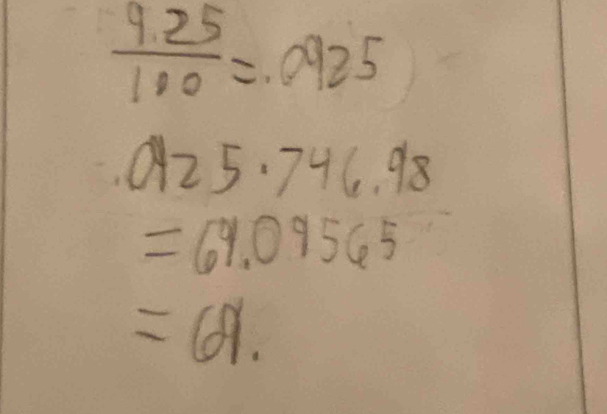 9.25
/100 = .0925
.0925 · 746.98
= 69.09565
= 69.